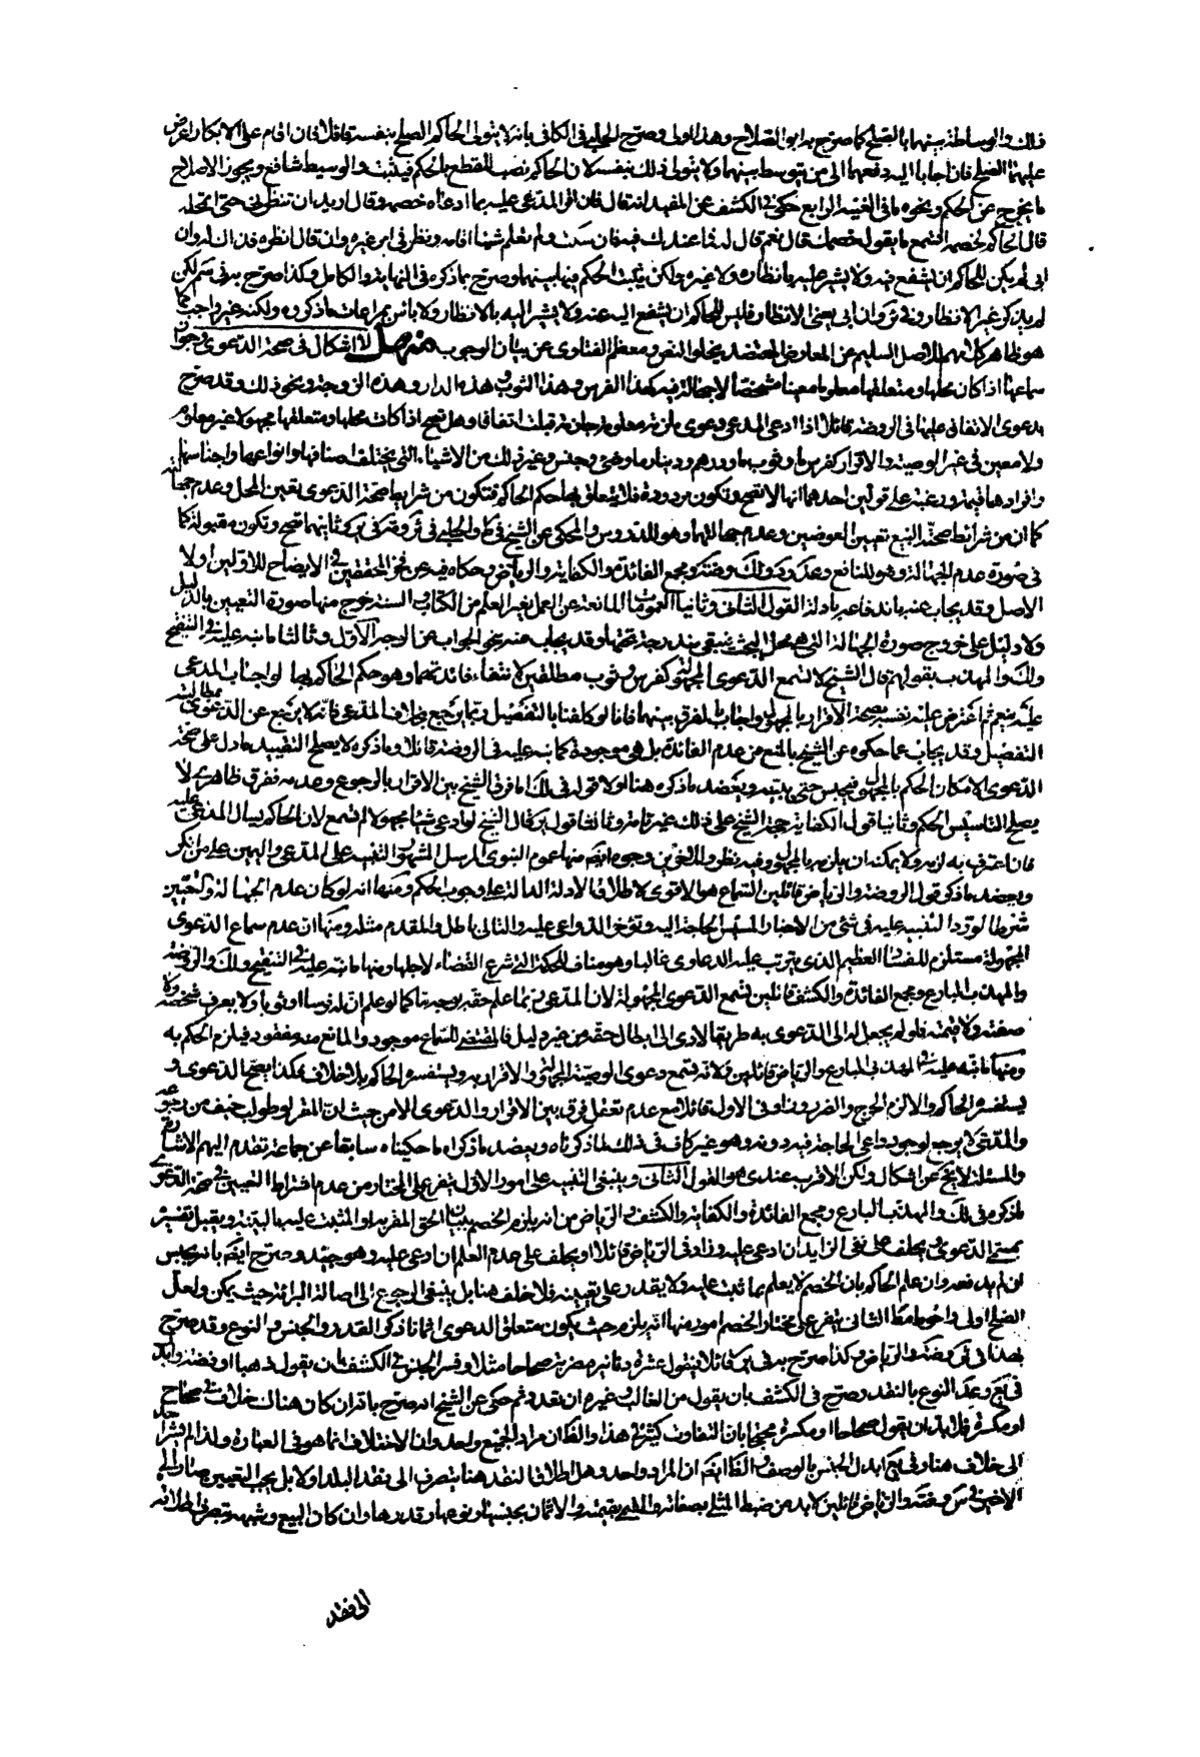 ذلك والوساطة بينهما بالصلح كما صرح به ابو الصلاح وهذا اولى وصرح الحلبي في الكافي بانه لا يتولى الحاكم الصلح بنفسه قائلا فان اقام على الانكار اعرض
عليهما الصلح فان اجابا اليه دفعهما الى من يتوسط بينهما ولا يتولى ذلك بنفسه لان الحاكم نصب للقطع بالحكم والوسيط شافع ويجوز الاصلاح
ما يخرج عن الحكم ونحوه ما في الغنية الرابع حكى في الكشف عن المفيد انه قال فان اقر المدعى عليه بما ادعاه خصمه وقال اريد ان تنظرني حتى اتخلله
قال الحاكم لخصمه اتسمع ما يقول خصمك قال نعم قال له فما عندك فيه فان سكت ولم يقل شيئا اقامه ونظر في امر غيره وان قال انظره فذاك له وان
ابى لم يكن للحاكم ان يشفع فيه ولا يشير عليه بانظاره ولا غيره ولكن يثبت الحكم فيما بينهما وصرح بما ذكره في النهاية والكامل وكذا صرح به في لكن
لم يذكر غير الانظار وفي وان ابى يعني الانظار فليس للحاكم ان يشفع اليه عنه ولا يشير اليه بالانظار ولا باس بمراعات ما ذكروه ولكنه غير واجب كما
هو ظاهر للاصل السليم عن المعارض المعتضد بخلو النص ومعظم الفتاوى عن بيان الوجوب منهل لا اشكال في صحة الدعوى وجواز
سماعها اذا كان محلها ومتعلقها معلوما معينا مشخصا لا جهالة فيه كهذا الفرس وهذا الثوب وهذه الدار وهذه الزوجة ونحو ذلك وقد صرح
بدعوى الاتفاق عليها في الروضة قائلا اذا ادعى المدعي دعوى ملزمة معلومة جازمة قبلت اتفاقا وهل تصح اذا كانت محلها ومتعلقها مجهولا غير معلوم
ولا معين في غير الوصية والاقرار كفرس ما وثوب ما ودرهم ودينار ما وشيء وجنس وغير ذلك من الاشياء التي يختلف اصنافها وانواعها واجناسها
وافرادها قيمة ورغبة على قولين احدهما انها لا تصح وتكون مردودة فلا يتعلق بها حكم الحاكم فتكون من شرايط صحة الدعوى تعيين المحل وعدم جهالته
كما ان من شرائط صحة البيع تعيين العوضين وعدم جهالتهما وهو للدروس والمحكي عن الشيخ في والحلي في وثانيهما تصح وتكون مقبولة كما
في صورة عدم الجهالة وهو للنافع ومجمع الفائدة والكفاية والرياض وحكاه فيه عن فخر المحققين في الايضاح للاولين اولا
الاصل وقد يجاب عنه باندفاعه بادلة القول الثاني وثانيا العمومات المانعة عن العمل بغير العلم من الكتاب والسنة خرج منها صورة التعيين بالدليل
ولا دليل على خروج صورة الجهالة التي هي محل البحث فتبقى مندرجة تحتها وقد يجاب عنه بنحو الجواب عن الوجه الاول وثالثا ما نبه عليه في التنقيح
ولك والمهذب بقولهم قال الشيخ لا تسمع الدعوى المجهولة كفرس وثوب مطلقين لانتفاء فائدتها وهو حكم الحاكم بها لو اجاب المدعى
عليه بنعم ثم اعترض على نفسه بصحة الاقرار بالمجهول واجاب بالفرق بينهما فانا لو كلفناه بالتفصيل ربما يرجع بخلاف المدعي فانه لا يرجع عن الدعوى لمطالبته
التفصيل وقد يجاب عما حكوه عن الشيخ بالمنع من عدم الفائدة بل هي موجودة كما نبه عليه في الروضة قائلا وما ذكره لا يصلح لتقييد ما دل على صحة
الدعوى لامكان الحكم بالمجهول فيحبس حتى يبينه ويعضد ما ذكره هنا اولا قوله في لك اما فرق الشيخ بين الاقرار بالرجوع وعدمه ففرق ظاهري لا
يصلح لتاسيس الحكم وثانيا قول الكفاية حجة الشيخ على ذلك غير تامة وثالثا قوله قال الشيخ لو ادعى شيئا مجهولا لم تسمع لان الحاكم يسال المدعى عليه
فان اعترف به لزمه ولا يمكنه ان يلزمه بالمجهول وفيه نظر وللاخرين وجوه ايضا منها عموم النبوي المرسل المشهور البينة على المدعي واليمين على من انكر
ويعضد ما ذكر قول الروضة والرياض قائلين السماع هو الاقوى لاطلاق الادلة الدالة على وجوب الحكم ومنها انه لو كان عدم الجهالة والتعيين
شرطا لورد التنبيه عليه في شئ من الاخبار لمسيس الحاجة اليه وتوفر الدواعي عليه والتالي باطل والمقدم مثله ومنها ان عدم سماع الدعوى
المجهولة مستلزم للفساد العظيم الذي يترتب عليه الدعاوى غالبا وهو مناف للحكمة التي شرع القضاء لاجلها ومنها ما نبه عليه في التنقيح ولك والروضة
والمهذب البارع ومجمع الفائدة والكشف قائلين تسمع الدعوى المجهولة لان المدعي ربما علم حقه بوجه ما كما لو علم ان له فرسا او ثوبا ولا يعرف شخصه ولا
صفته ولا قيمته فلو لم يجعل له الى الدعوى به طريقا لادى الى ابطال حقه من غير دليل فالمقتضي للسماع موجود والمانع منه مفقود فيلزم الحكم به
ومنها ما نبه عليه في المهذب البارع والرياض قائلين ولانه تسمع دعوى الوصية المجهولة والاقرار به ويستفسره الحاكم بلا خلاف فكذا يصح الدعوى و
يستفسره الحاكم والا لزم الحرج والضرر وزاد في الاول قائلا مع عدم تعقل فرق بين الاقرار والدعوى الا من حيث ان المقر لو طولب خيف من رجوعه
والمدعي لا يرجع لوجود داعي الحاجة فيه دونه وهو غير كاف في ذلك لما ذكرناه ويعضد ما ذكراه ما حكيناه سابقا عن جماعة تقدم اليهم الاشارة
والمسئلة لا تخ عن اشكال ولكن الاقرب عندي هو القول الثاني وينبغي التنبيه على امور الاول يتفرع على المختار من عدم اشتراط التعيين في صحة الدعوى
ما ذكره في لك والمهذب البارع ومجمع الفائدة والكفاية والكشف والرياض من انه يلزم الخصم ببيان الحق المقر به او المثبت عليه بالبينة ويقبل تفسيره
بمسمى الدعوى ويحلف على نفي الزايد ان ادعى عليه وزاد في الرياض قائلا او يحلف على عدم العلم ان ادعى عليه وهو جيد وصرح ايضا بانه يحبس
ان لم يبد نعم وان علم الحاكم بان الخصم لا يعلم بما ثبت عليه ولا يقدر على تعيينه فلا حلف هنا بل ينبغي الرجوع الى اصالة البرائة حيث يمكن ولعل
الصلح اولى واحوط مط الثاني يتفرع على مختار الخصم امور منها انه يلزمه حيث يكون متعلق الدعوى اثمانا ذكر القدر والجنس والنوع وقد صرح
بهذا في والرياض وكذا صرح به في قائلا فيقول عشرة دنانير مصرية صحاحا مثلا وفسر الجنس في الكشف بان يقول ذهبا او فضة وابدل
في النوع بالنقد وصرح في الكشف بان يقول من الغالب وغيره ان تعدد ثم حكى عن الشيخ انه صرح بانه ان كان هناك خلاف في صحاح
او مكسرة فلا بد ان يقول صحاحا او مكسرة محتجا بان التفاوت كثير في هذا والظ ان مراد الجميع واحد وان الاختلاف انما هو في العبارة ولذا لم يشر احد
الى خلاف هنا وفي ابدل الجنس بالوصف والظ ايضا ان المراد واحد وهل اطلاق النقد هنا ينصرف الى نقد البلد او لا بل يجب التعيين صار الى
الاخير في والرياض قائلين لا بد من ضبط المثلي بصفاته والقيمي بقيمته والاثمان بجنسها ونوعها وقدرها وان كان البيع وشبهه ينصرف اطلاقه
الى نقد